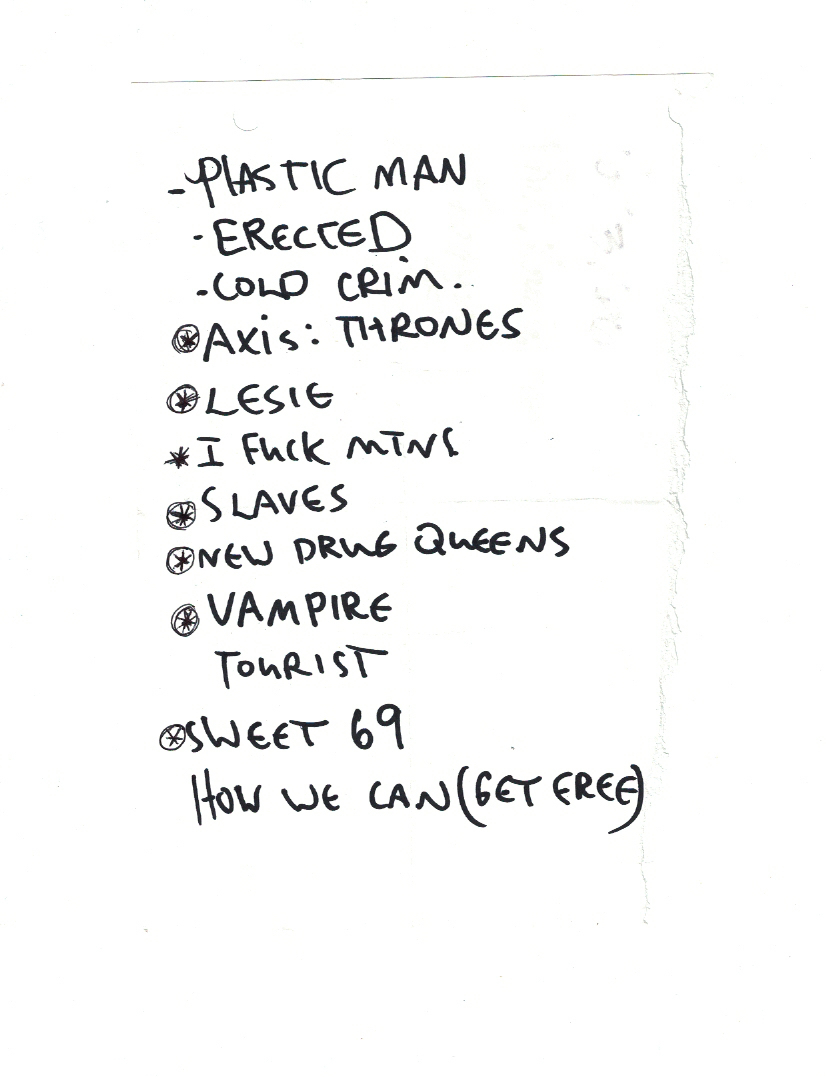 - PLASTIC MAN
- ERECTED
- COLD CRIM.
⊛ AXIS: THRONES
⊛ LESIE
* I FUCK MTNS
⊛ SLAVES
⊛ NEW DRUG QUEENS
⊛ VAMPIRE
TOURIST
⊛ SWEET 69
HOW WE CAN (GET FREE)